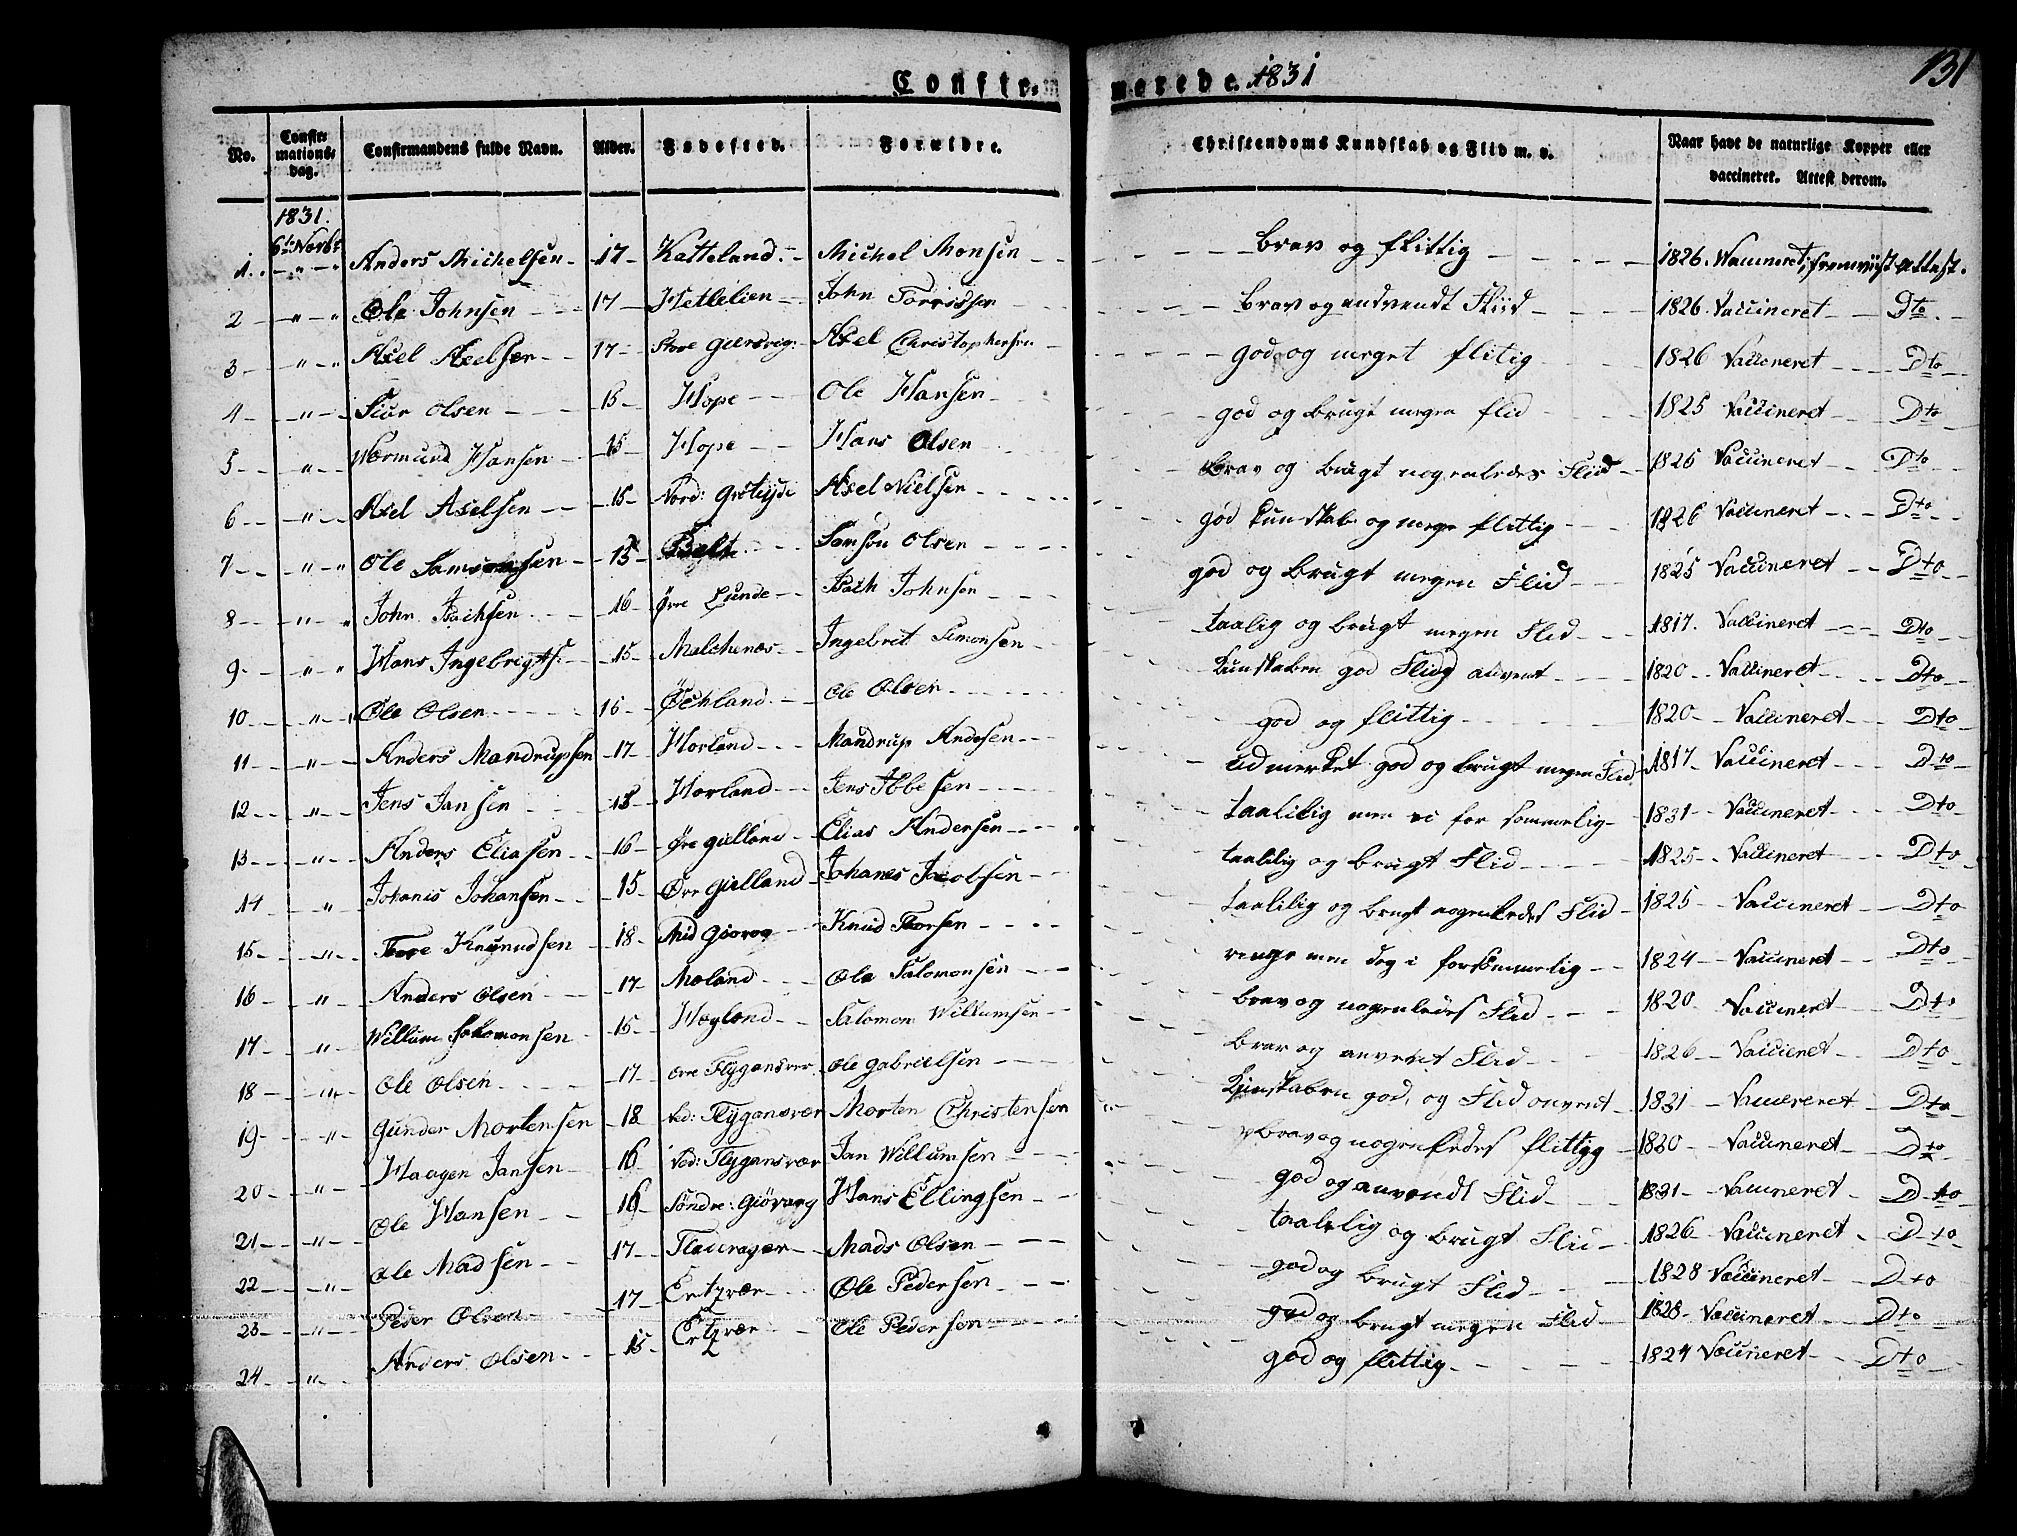 Confir- merede. 1831 131
No. Confirmationsdag. Confirmandens fulde Navn. Alder. Fødested. Forældre. Christendoms Kundskab og Flid m. v. Naar havt de naturlige Kopper eller vaccineret. Attest derom.
1831.
6te Novbr
1 Anders Michelsen 17 Katteland Michel Monsen Brav og flittig 1826. Vaccineret, fremviist Attest.
2 " " Ole Johnsen 17 Hetlelien John Torrissen Brav og andvendt Fliid 1826. Vaccineret Dto
3 " " Axel Axelsen 17 Store Giersvig: Axel Christophersen god og meget flitig 1826 Vaccineret Dto
4 " Siur Olsen 15 Hope Ole Hansen god og brugt megen flid 1825 Vaccineret Dto
5 " Wermund Hansen 15 Hope Hans Olsen Brav og brugt nogenledes Fliid 1826 Vaccineret Dto
6 " Axel Axelsen 15 Nord: Axel Nielsen god Kunskab og flittig 1826 Vaccineret Dto
7 " " Ole Samsonsen 15 Samson Olsen god og brugt megen Flid 1825 Vaccineret Dto
8 " " John 16 Øvre Lunde Johnsen taalig og brugt megen Flid 1817. Vaccineret Dto
9 " " Hans Ingebrigts: 15 Malchenæs Ingebrit Simonsen Kunskaben god Flidg anvent 1820 Vaccineret Dto
10 " Ole Olsen 16 Ole Olsen god og flittig 1820 Vaccineret Dto
11 " Anders Mandrupsen 17 Horland Mandrup Andersen udmerket god og brugt megen Flid 1817 Vaccineret Dto
12 " Jens Jansen Horland Jens Ibbesen taalilig men 1831 Vaccineret Dto
13 " Anders Eliasen 16 Øvre gielland Elias Andersen taalilig og brugt Flid 1825 Vaccineret Dto
14 " Johanis Johansen 15 Øvre Gielland Johanes Jacobsen taalilig og brugt nogenledes Flid 1825 Vaccineret Dto
15 " Tore Knudsen 18 Mid Knud Torsen ringe men dog i forsømmelig 1824 Vaccineret Dto
16 " Anders Olsen 17 Moland Ole Salomonsen brav og nogenledes Flid 1820 Vaccineret Dto
17 " Willum Salomonsen 15 Høyland Salomon Willumsen Brav og anvendt Flid 1826 Vaccienet Dto
18 " Ole Olsen 17 Ovre Flygansvær Ole Gabrielsen Kunskaben god, og Flid anvent 1831 Vaccineret Dto
19 " Gunder Mortensen 18 Ned: Flygansvær Morten Christensen Brav og nogenledes flittyg 1820 Vaccineret Dto
20 " Haagen Jansen 16 Ned: Flygansvær Jan Willumsen god og anvendt Flid 1831 Vaccineret Dto
21 " Ole Hansen 16 Søndre: Giøvaag Hans Ellingsen taalelig og brugt Flid 1826 Vaccineret Dto
22 " Ole Madsen 17 Flacurager Mads Olsen god og brugt Flid 1828 Vaccineret Dto
23 " Peder Olsen 17 Ertzvær Ole Pedersen god og brugt megen Flid 1828 Vaccineret Dto
24 " Anders Olsen 15 Ertzvær Ole Pedersen god og flittig 1824 Vaccineret Dto